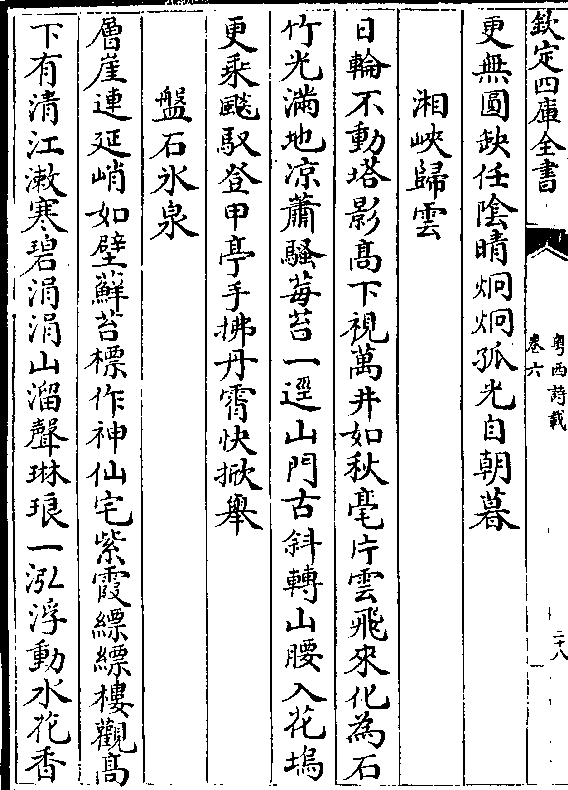 欽定四庫全書
粤西詩載
卷六
二十八
更無圓缺任陰晴炯炯孤光自朝暮
湘峽歸雲
日輪不動塔影高下視萬井如秋毫片雲飛來化為石
竹光滿地凉蕭騷莓苔一逕山門古斜轉山腰入花塢
更乘飈馭登甲亭手拂丹霄快掀舉
盤石氷泉
層崖連延峭如壁蘚苔標作神仙宅紫霞縹縹樓觀高
下有清江漱寒碧涓涓山溜聲琳琅一泓浮動水花香